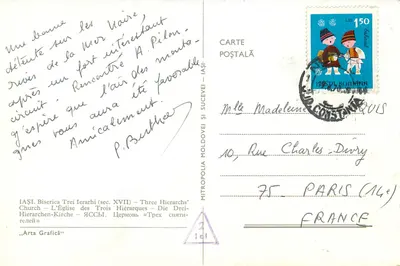 Une bonne
détente sur les
rives de la Mer Noire,
après un fort intéressant
circuit. Rencontré A. Pilon.
J'espère que l'air des monta-
gnes vous aura été favorable
Amicalement.
P.
IAŞI. Biserica Trei Ierarhi (sec. XVII) – Three Hierarchs'
Church – L'Église des Trois Hiérarques – Die Drei-
Hierarchen-Kirche – ЯССЫ. Церковь «Трех святи-
телей»
„Arta Grafică"
MITROPOLIA MOLDOVEI ŞI SUCEVEI – IAŞI
CARTE
POŞTALĂ
1,50
CONSTANTA
Mlle Madeleine
10, Rue Charles-Divry
75- PARIS (14e)
FRANCE
2
lei